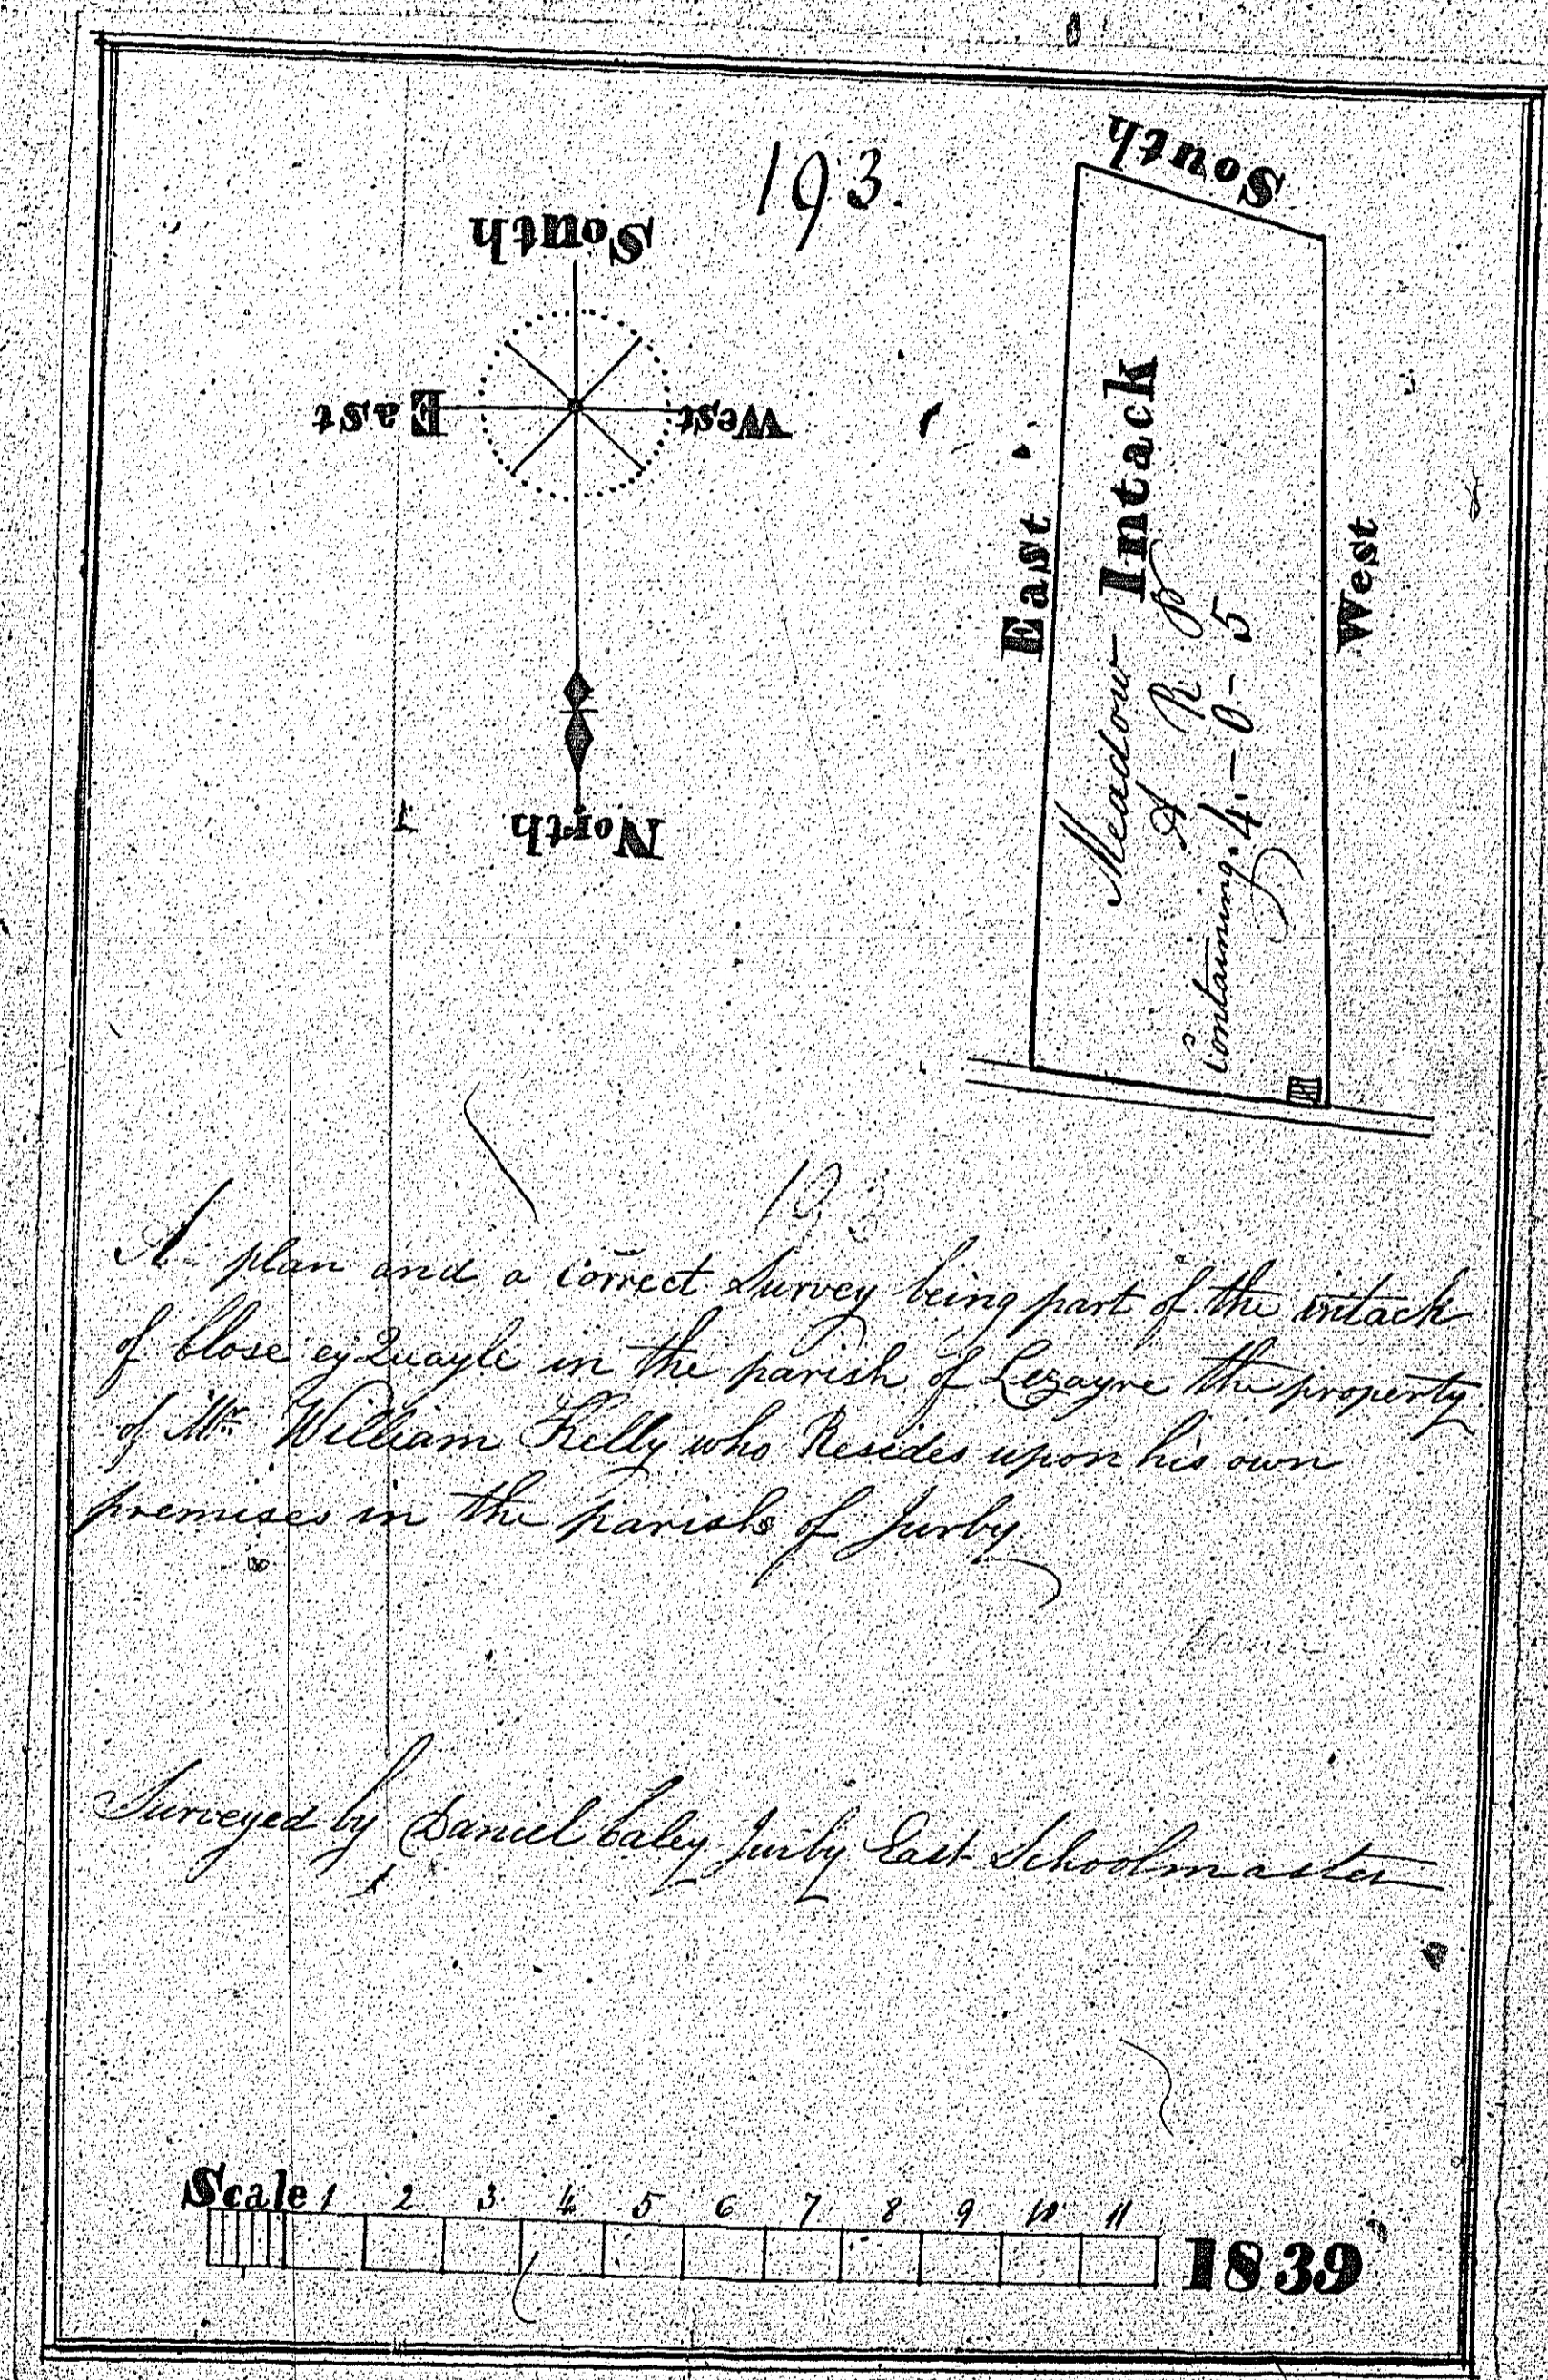 193.
South
South
East
West
North
East
Meadow Intack
A R P
Containing. 4.-0-5
West
193
A plan and a correct Survey being part of the intack
of Close ey Quayle in the parish of Lezayre the property
of Mr. William Kelly who Resides upon his own
premises in the parish of Jurby
Surveyed by Daniel Caley Jurby East Schoolmaster
Scale 1 2 3 4 5 6 7 8 9 10 11
1839